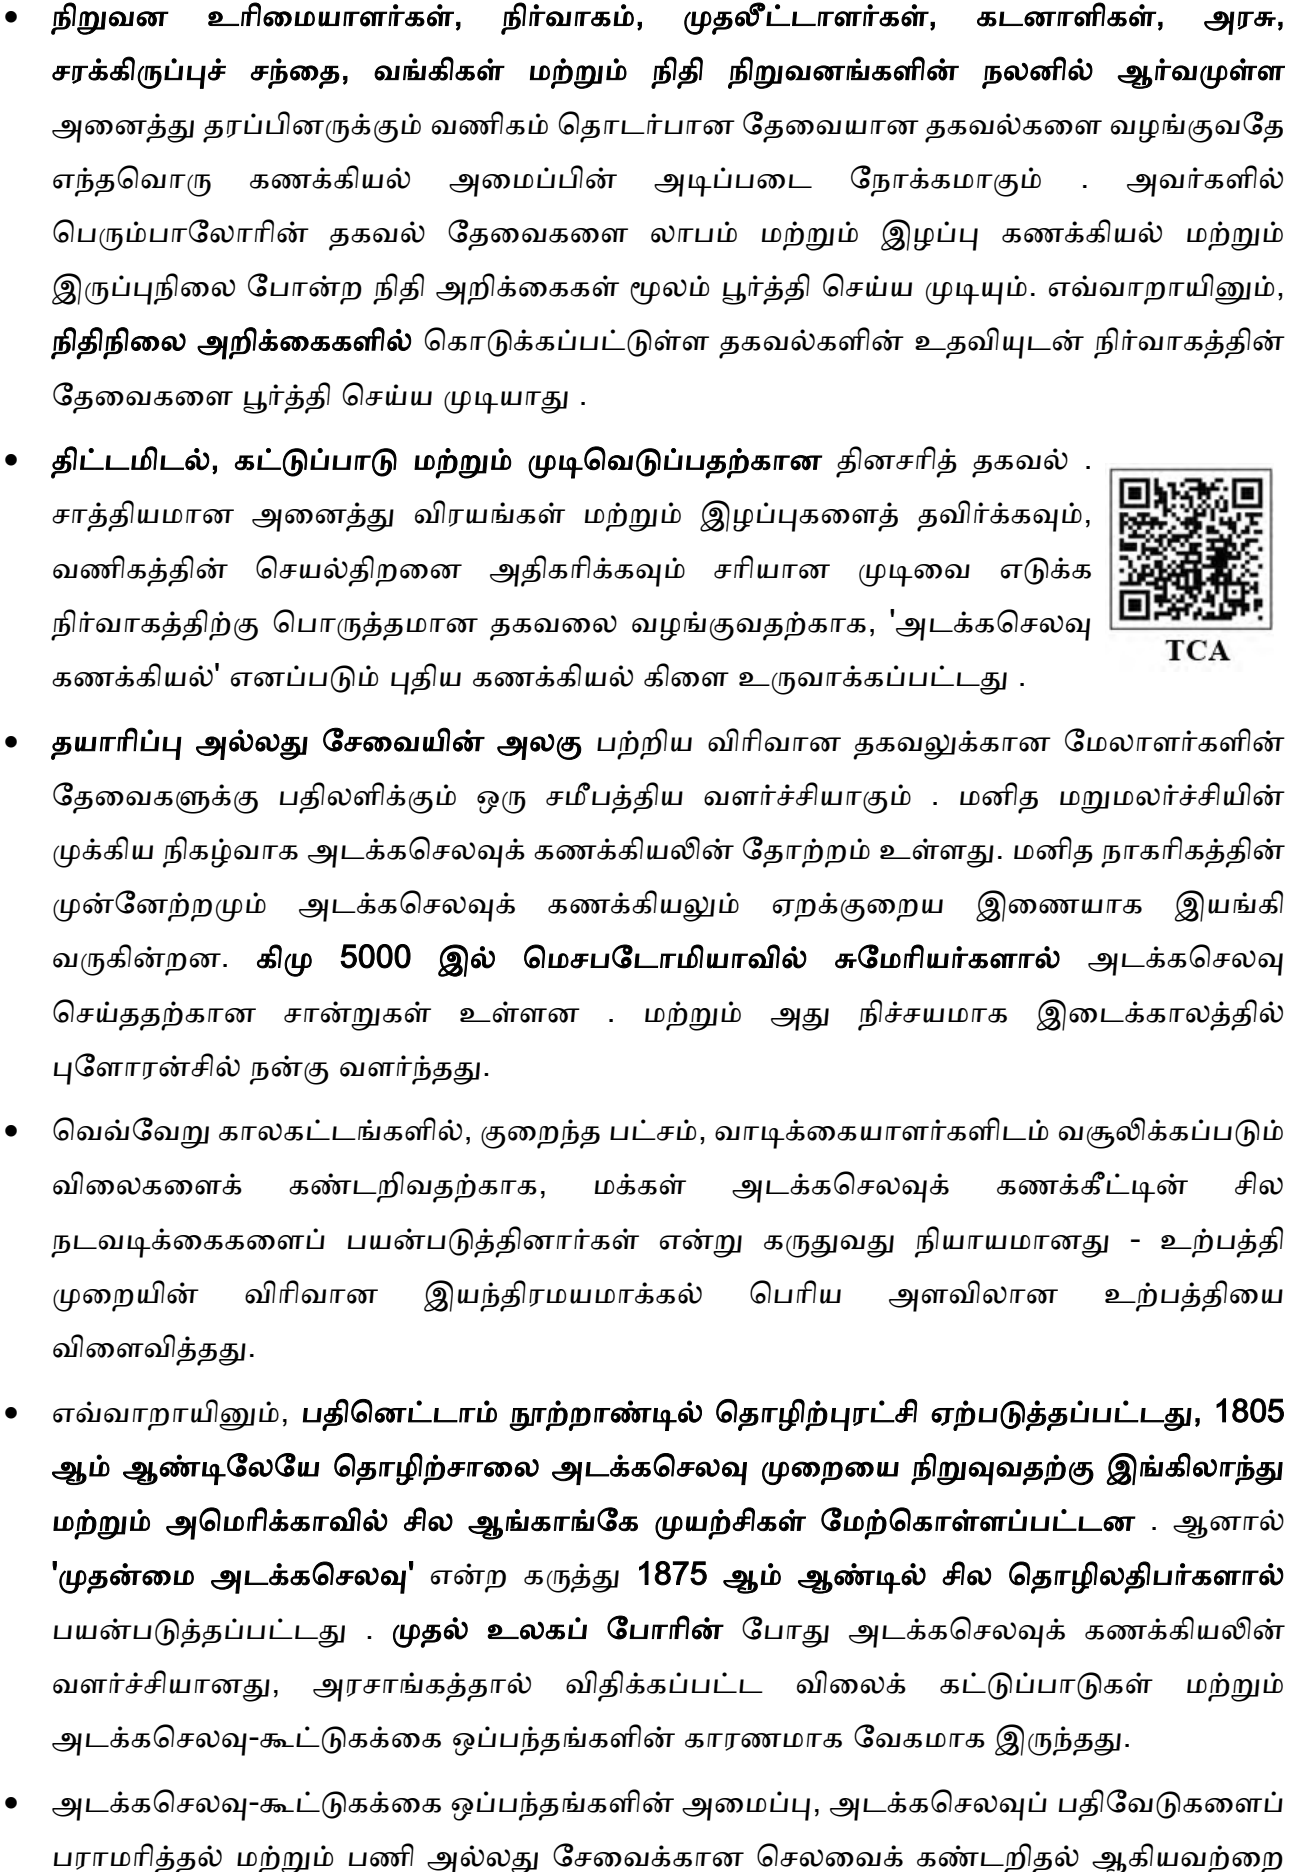 • நிறுவன உரிமையாளர்கள், நிர்வாகம், முதலீட்டாளர்கள், கடனாளிகள், அரசு,
சரக்கிருப்புச் சந்தை, வங்கிகள் மற்றும் நிதி நிறுவனங்களின் நலனில் ஆர்வமுள்ள
அனைத்து தரப்பினருக்கும் வணிகம் தொடர்பான தேவையான தகவல்களை வழங்குவதே
எந்தவொரு கணக்கியல் அமைப்பின் அடிப்படை நோக்கமாகும் . அவர்களில்
பெரும்பாலோரின் தகவல் தேவைகளை லாபம் மற்றும் இழப்பு கணக்கியல் மற்றும்
இருப்புநிலை போன்ற நிதி அறிக்கைகள் மூலம் பூர்த்தி செய்ய முடியும். எவ்வாறாயினும்,
நிதிநிலை அறிக்கைகளில் கொடுக்கப்பட்டுள்ள தகவல்களின் உதவியுடன் நிர்வாகத்தின்
தேவைகளை பூர்த்தி செய்ய முடியாது .
• திட்டமிடல், கட்டுப்பாடு மற்றும் முடிவெடுப்பதற்கான தினசரித் தகவல் .
சாத்தியமான அனைத்து விரயங்கள் மற்றும் இழப்புகளைத் தவிர்க்கவும்,
வணிகத்தின் செயல்திறனை அதிகரிக்கவும் சரியான முடிவை எடுக்க
நிர்வாகத்திற்கு பொருத்தமான தகவலை வழங்குவதற்காக, 'அடக்கசெலவு
கணக்கியல்' எனப்படும் புதிய கணக்கியல் கிளை உருவாக்கப்பட்டது .
TCA
• தயாரிப்பு அல்லது சேவையின் அலகு பற்றிய விரிவான தகவலுக்கான மேலாளர்களின்
தேவைகளுக்கு பதிலளிக்கும் ஒரு சமீபத்திய வளர்ச்சியாகும் . மனித மறுமலர்ச்சியின்
முக்கிய நிகழ்வாக அடக்கசெலவுக் கணக்கியலின் தோற்றம் உள்ளது. மனித நாகரிகத்தின்
முன்னேற்றமும் அடக்கசெலவுக் கணக்கியலும் ஏறக்குறைய இணையாக இயங்கி
வருகின்றன. கிமு 5000 இல் மெசபடோமியாவில் சுமேரியர்களால் அடக்கசெலவு
செய்ததற்கான சான்றுகள் உள்ளன . மற்றும் அது நிச்சயமாக இடைக்காலத்தில்
புளோரன்சில் நன்கு வளர்ந்தது.
• வெவ்வேறு காலகட்டங்களில், குறைந்த பட்சம், வாடிக்கையாளர்களிடம் வசூலிக்கப்படும்
விலைகளைக் கண்டறிவதற்காக, மக்கள் அடக்கசெலவுக் கணக்கீட்டின் சில
நடவடிக்கைகளைப் பயன்படுத்தினார்கள் என்று கருதுவது நியாயமானது - உற்பத்தி
முறையின் விரிவான இயந்திரமயமாக்கல் பெரிய அளவிலான உற்பத்தியை
விளைவித்தது.
• எவ்வாறாயினும், பதினெட்டாம் நூற்றாண்டில் தொழிற்புரட்சி ஏற்படுத்தப்பட்டது, 1805
ஆம் ஆண்டிலேயே தொழிற்சாலை அடக்கசெலவு முறையை நிறுவுவதற்கு இங்கிலாந்து
மற்றும் அமெரிக்காவில் சில ஆங்காங்கே முயற்சிகள் மேற்கொள்ளப்பட்டன . ஆனால்
'முதன்மை அடக்கசெலவு' என்ற கருத்து 1875 ஆம் ஆண்டில் சில தொழிலதிபர்களால்
பயன்படுத்தப்பட்டது . முதல் உலகப் போரின் போது அடக்கசெலவுக் கணக்கியலின்
வளர்ச்சியானது, அரசாங்கத்தால் விதிக்கப்பட்ட விலைக் கட்டுப்பாடுகள் மற்றும்
அடக்கசெலவு-கூட்டுகக்கை ஒப்பந்தங்களின் காரணமாக வேகமாக இருந்தது.
• அடக்கசெலவு-கூட்டுகக்கை ஒப்பந்தங்களின் அமைப்பு, அடக்கசெலவுப் பதிவேடுகளைப்
பராமரித்தல் மற்றும் பணி அல்லது சேவைக்கான செலவைக் கண்டறிதல் ஆகியவற்றை